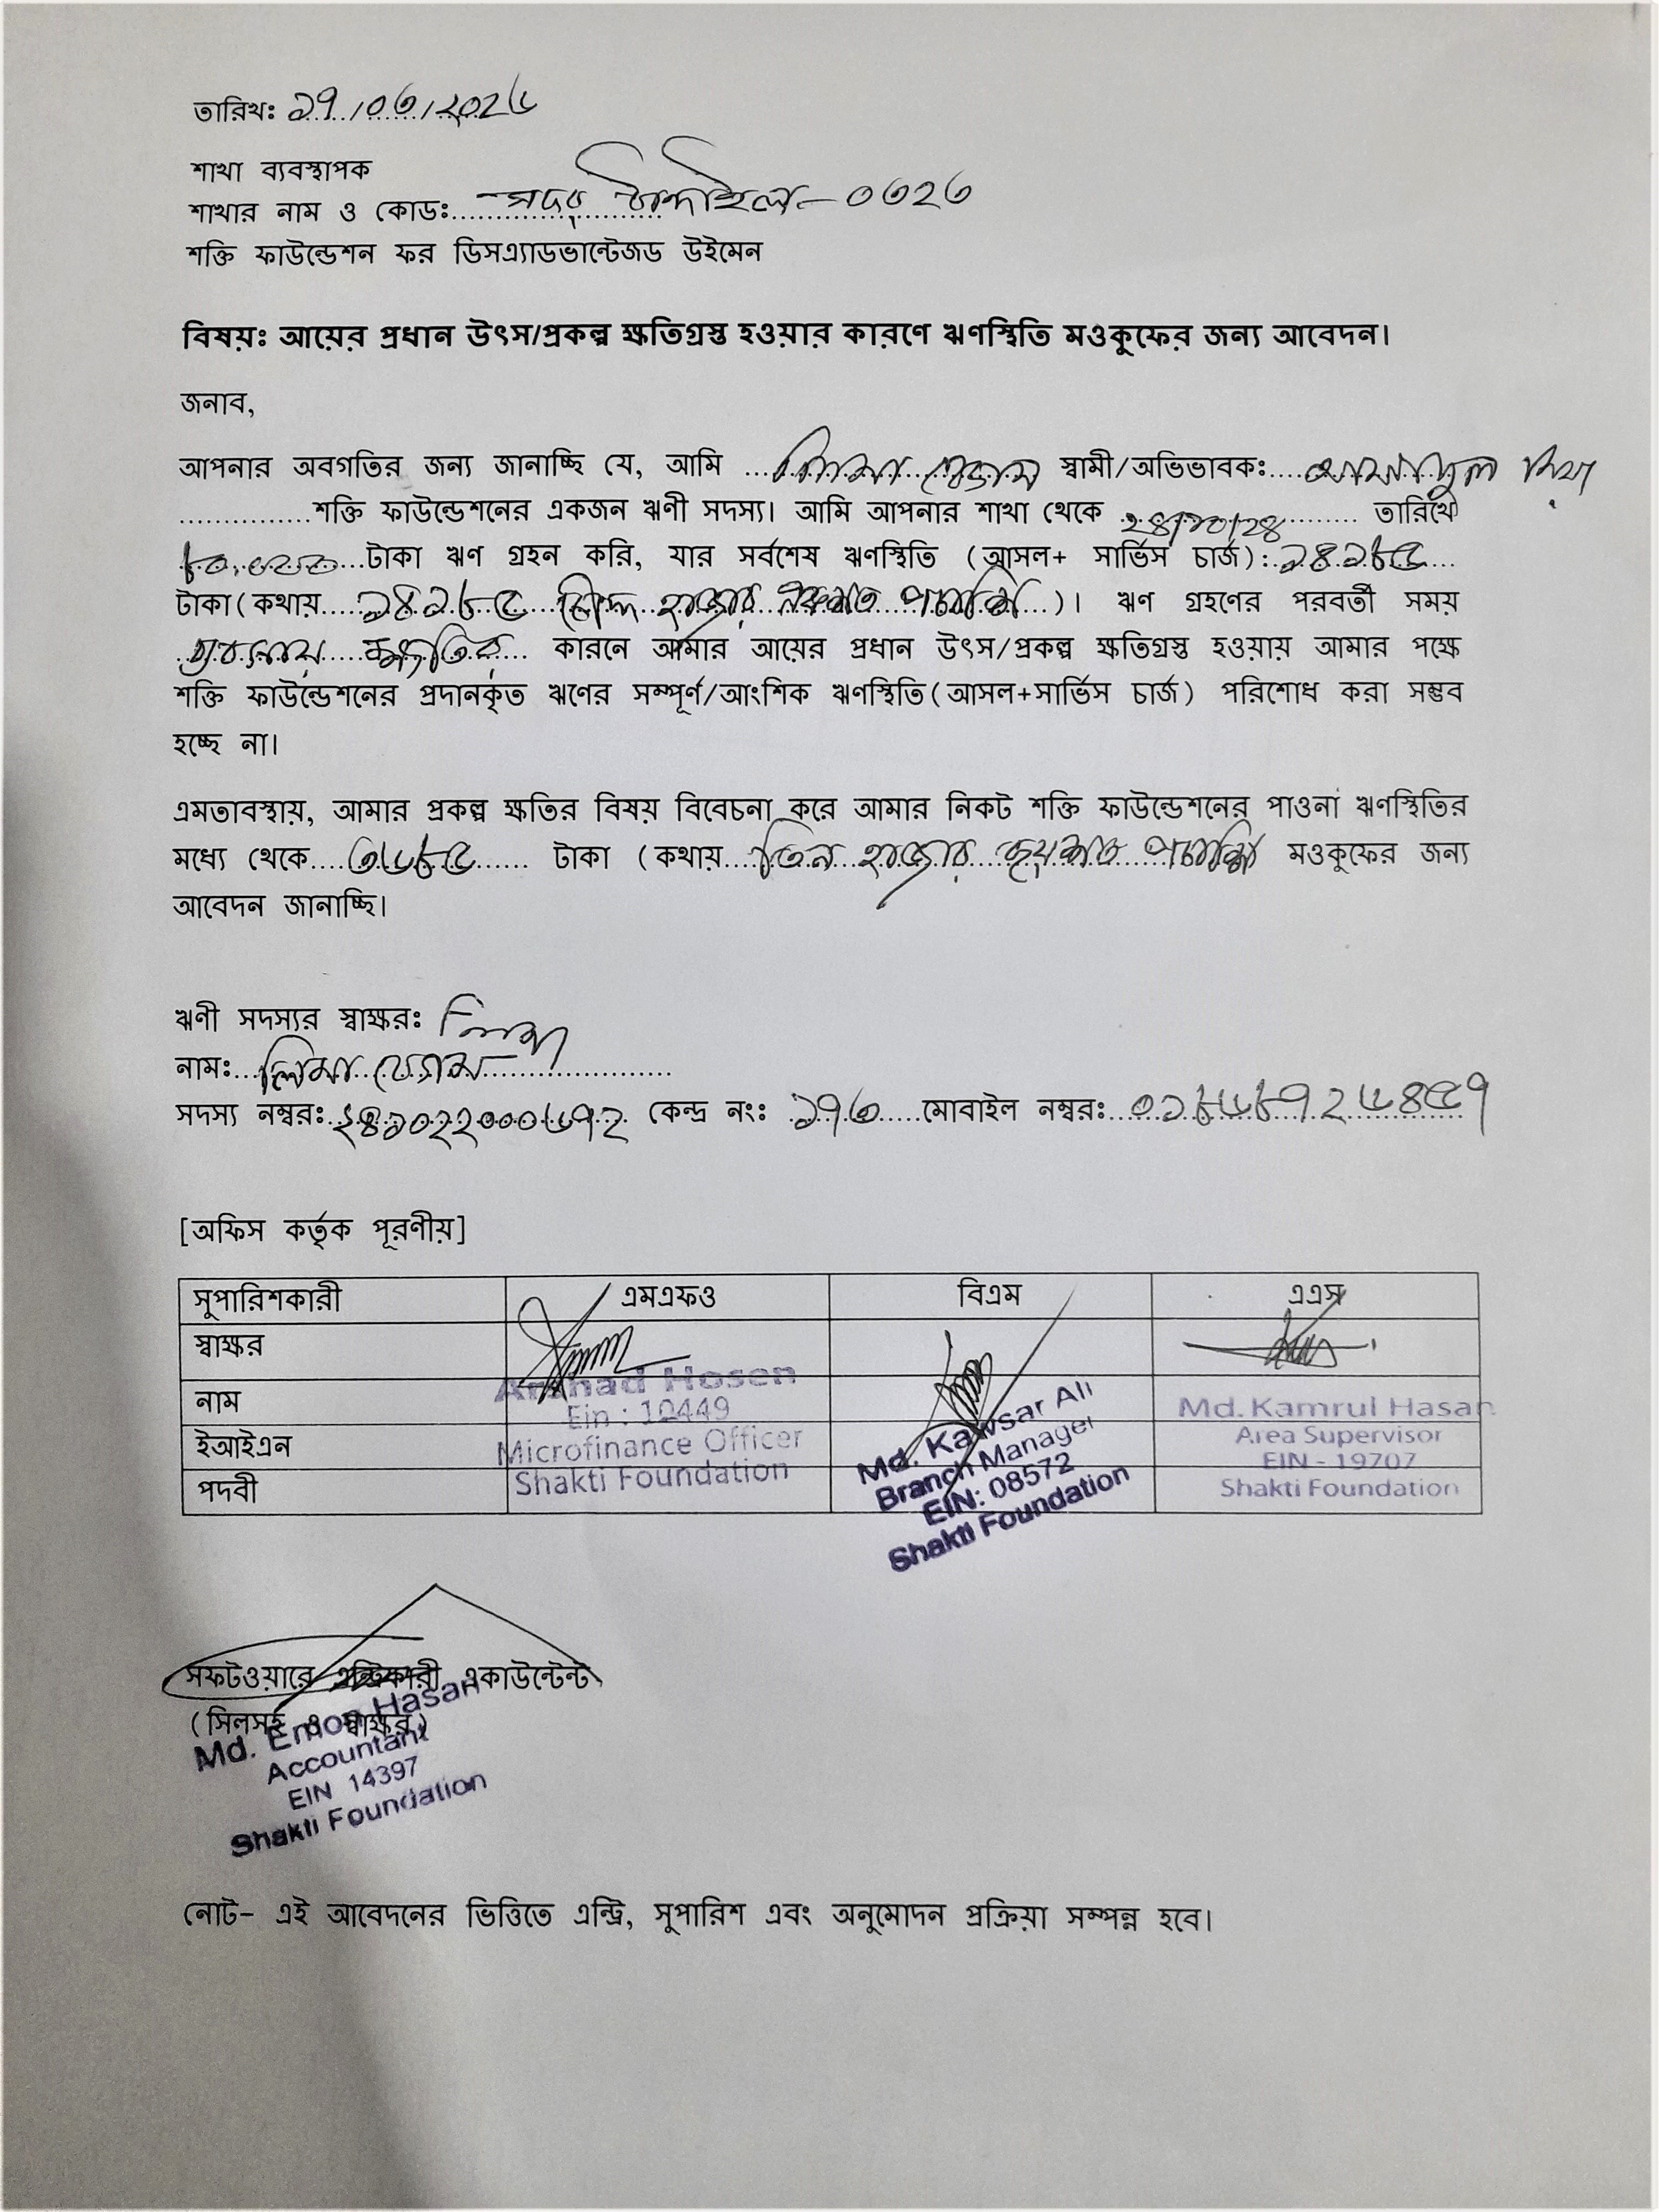 তারিখঃ ১৭/০৩/২০২৬
শাখা ব্যবস্থাপক
শাখার নাম ও কোডঃ সদর টাঙ্গাইল-০৩২৩
শক্তি ফাউন্ডেশন ফর ডিসএ্যাডভান্টেজড উইমেন
বিষয়ঃ আয়ের প্রধান উৎস/প্রকল্প ক্ষতিগ্রস্ত হওয়ার কারণে ঋণস্থিতি মওকুফের জন্য আবেদন।
জনাব,
আপনার অবগতির জন্য জানাচ্ছি যে, আমি ... লিমা বেগম স্বামী/অভিভাবকঃ.... মিয়া
...............শক্তি ফাউন্ডেশনের একজন ঋণী সদস্য। আমি আপনার শাখা থেকে ২৪/১০/২৪ ......... তারিখে
৮০,০০০...টাকা ঋণ গ্রহন করি, যার সর্বশেষ ঋণস্থিতি (আসল+ সার্ভিস চার্জ):.১৪১৮৫...
টাকা(কথায়....১৪১৮৫...চৌদ্দ হাজার একশত পচাশি...)। ঋণ গ্রহণের পরবর্তী সময়
ব্যবসায় ক্ষতির.... কারনে আমার আয়ের প্রধান উৎস/প্রকল্প ক্ষতিগ্রস্ত হওয়ায় আমার পক্ষে
শক্তি ফাউন্ডেশনের প্রদানকৃত ঋণের সম্পূর্ণ/আংশিক ঋণস্থিতি(আসল+সার্ভিস চার্জ) পরিশোধ করা সম্ভব
হচ্ছে না।
এমতাবস্থায়, আমার প্রকল্প ক্ষতির বিষয় বিবেচনা করে আমার নিকট শক্তি ফাউন্ডেশনের পাওনা ঋণস্থিতির
মধ্যে থেকে....৩৬৮৫...... টাকা (কথায়....তিন হাজার ছয়শত পচাশি মওকুফের জন্য
আবেদন জানাচ্ছি।
ঋণী সদস্যর স্বাক্ষরঃ লিমা
নামঃ...লিমা বেগম......................
সদস্য নম্বরঃ.২৪১০২২০০০৬৭২ কেন্দ্র নংঃ ১৭৩.....মোবাইল নম্বরঃ...০১৮৬৮৭২৬৪৫৭
[অফিস কর্তৃক পূরণীয়]
সুপারিশকারী এমএফও বিএম এএস
স্বাক্ষর
নাম Arshad Hosen Md. Kawsar Ali Md. Kamrul Hasan
ইআইএন Ein : 10449 Branch Manager Area Supervisor
Microfinance Officer EIN: 08572 EIN - 19707
পদবী Shakti Foundation Shakti Foundation Shakti Foundation
সফটওয়ারে এন্ট্রিকারী একাউন্টেন্ট
(সিলসহ ও স্বাক্ষর)
Md. Emon Hasan
Accountant
EIN 14397
Shakti Foundation
নোট- এই আবেদনের ভিত্তিতে এন্ট্রি, সুপারিশ এবং অনুমোদন প্রক্রিয়া সম্পন্ন হবে।